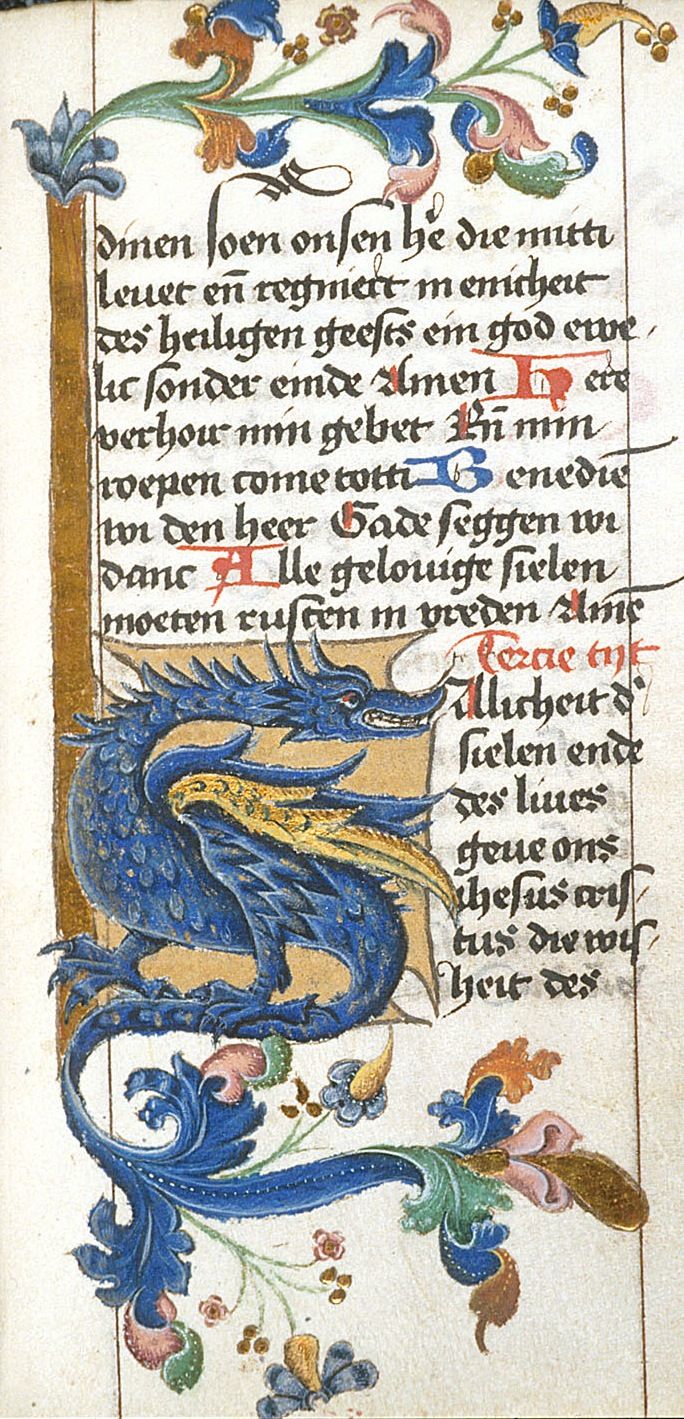 dinen soen onsen hē die mitti
leuet en̄ regniert in enicheit
des heiligen geests ein god ewe
lic sonder einde Amen Here
verhoir min gebet En̄ min
roepen come totti Benedie
wi den heer Gade seggen wi
danc Alle gelouige sielen
moeten rusten in vreden Amē
Tercie tijt
Sallicheit d'
sielen ende
des liues
geue ons
ihesus cris
tus die wis
heit des